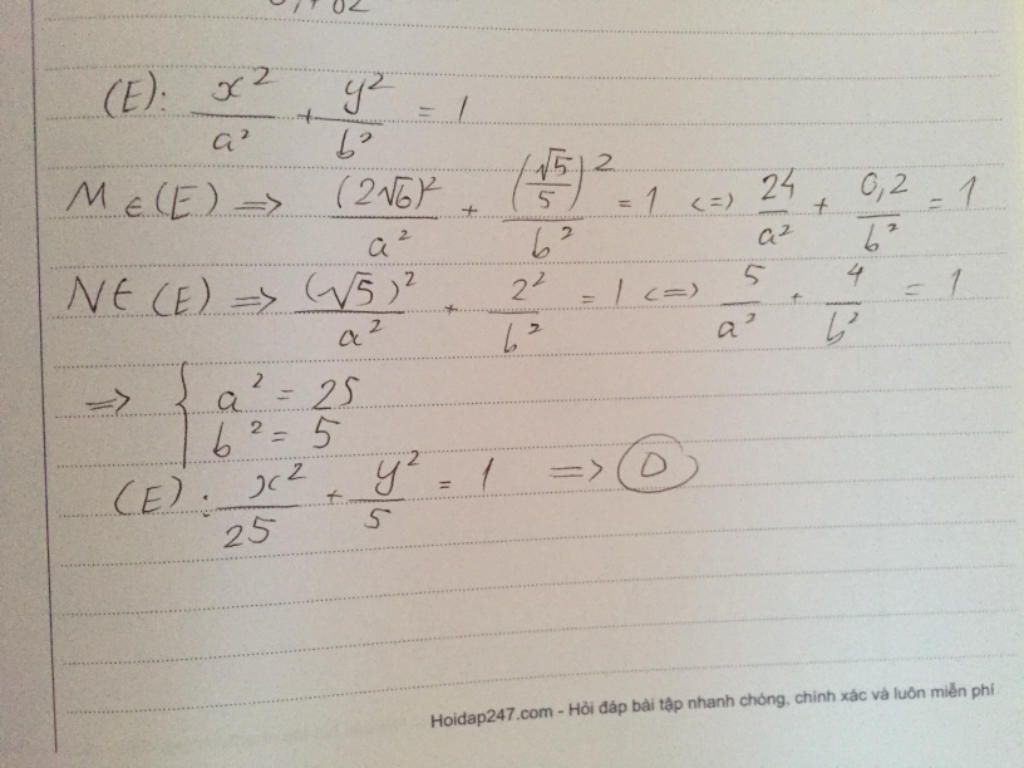 (E): x²/a² + y²/b² = 1
M ∈ (E) => (2√6)²/a² + (√5/5)²/b² = 1 <=> 24/a² + 0,2/b² = 1
N ∈ (E) => (√5)²/a² + 2²/b² = 1 <=> 5/a² + 4/b² = 1
=> { a² = 25
b² = 5
(E): x²/25 + y²/5 = 1 => D
Hoidap247.com - Hỏi đáp bài tập nhanh chóng, chính xác và luôn miễn phí